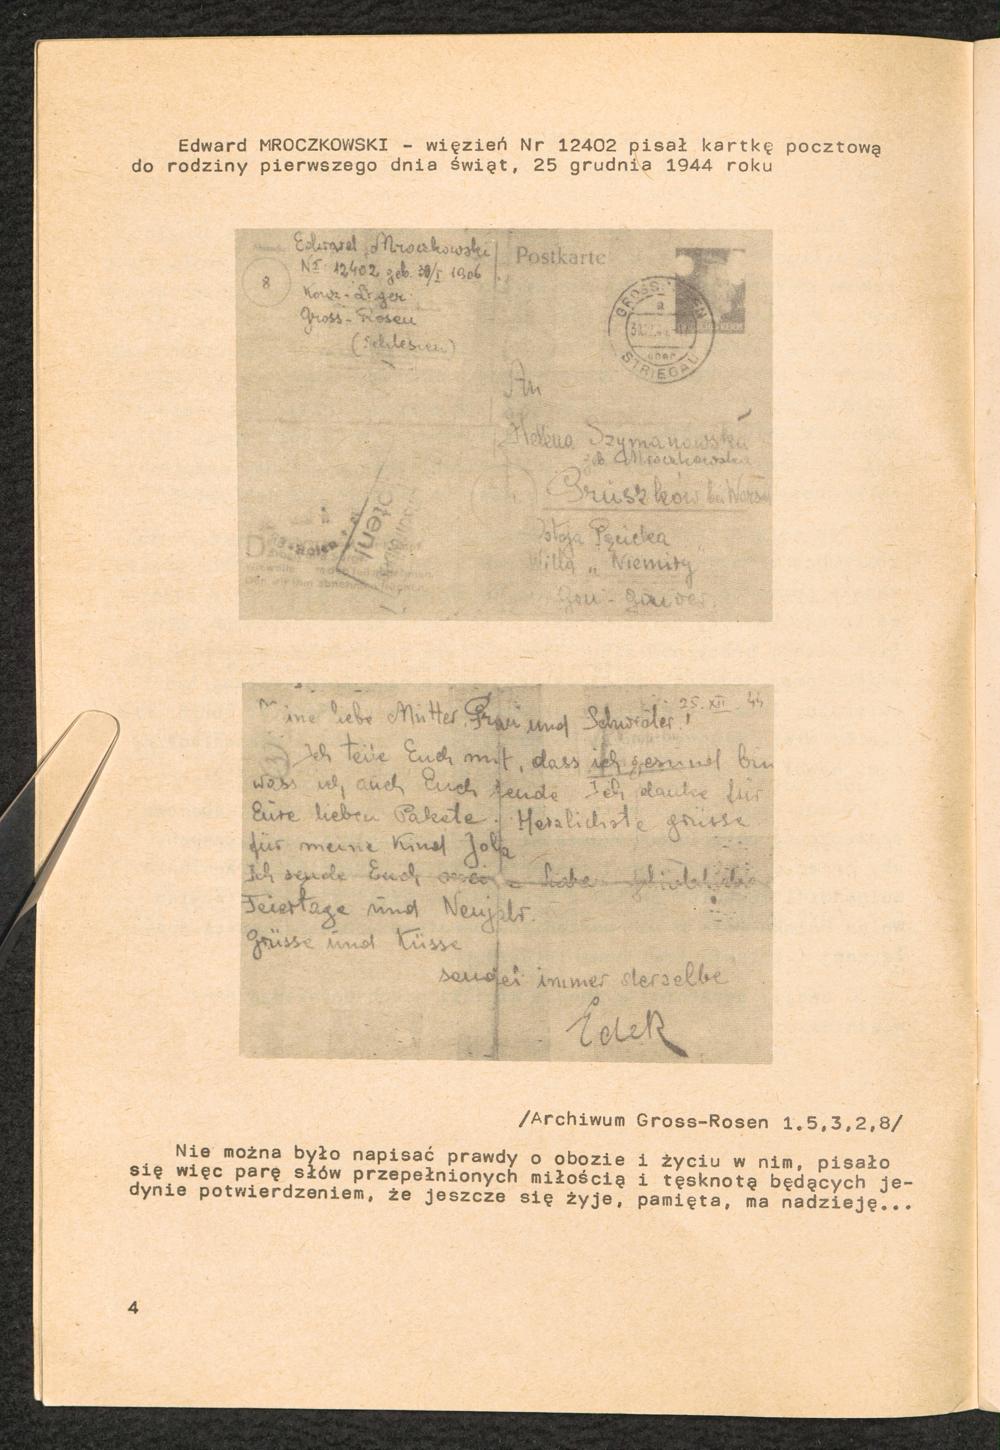 Edward MROCZKOWSKI - więzień Nr 12402 pisał kartkę pocztową
do rodziny pierwszego dnia świąt, 25 grudnia 1944 roku
Edward Mroczkowski
Nr 12402 geb. 30/I 1906
8
Konz-Lager
Gross-Rosen
(Schlesien)
Postkarte
GROSS-ROSEN
a
über
STRIEGAU
An
Helena Szymanowska
geb. Mroczkowska
Pruszków bei Warsch
Stoja Pęcicka
Willa „Niemiry"
25.XII. 44
Meine liebe Mutter, Frau und Schwester!
Ich teile Euch mit, dass ich gesund bin
wass ich auch Euch sende Ich danke für
Eure lieben Pakete. Herzlichste grüsse
für meine Kind Jola
Ich sende Euch
Feiertage und Neujahr.
Grüsse und Küsse
sendet immer derselbe
Edek
/Archiwum Gross-Rosen 1.5,3,2,8/
Nie można było napisać prawdy o obozie i życiu w nim, pisało
się więc parę słów przepełnionych miłością i tęsknotą będących je-
dynie potwierdzeniem, że jeszcze się żyje, pamięta, ma nadzieję...
4